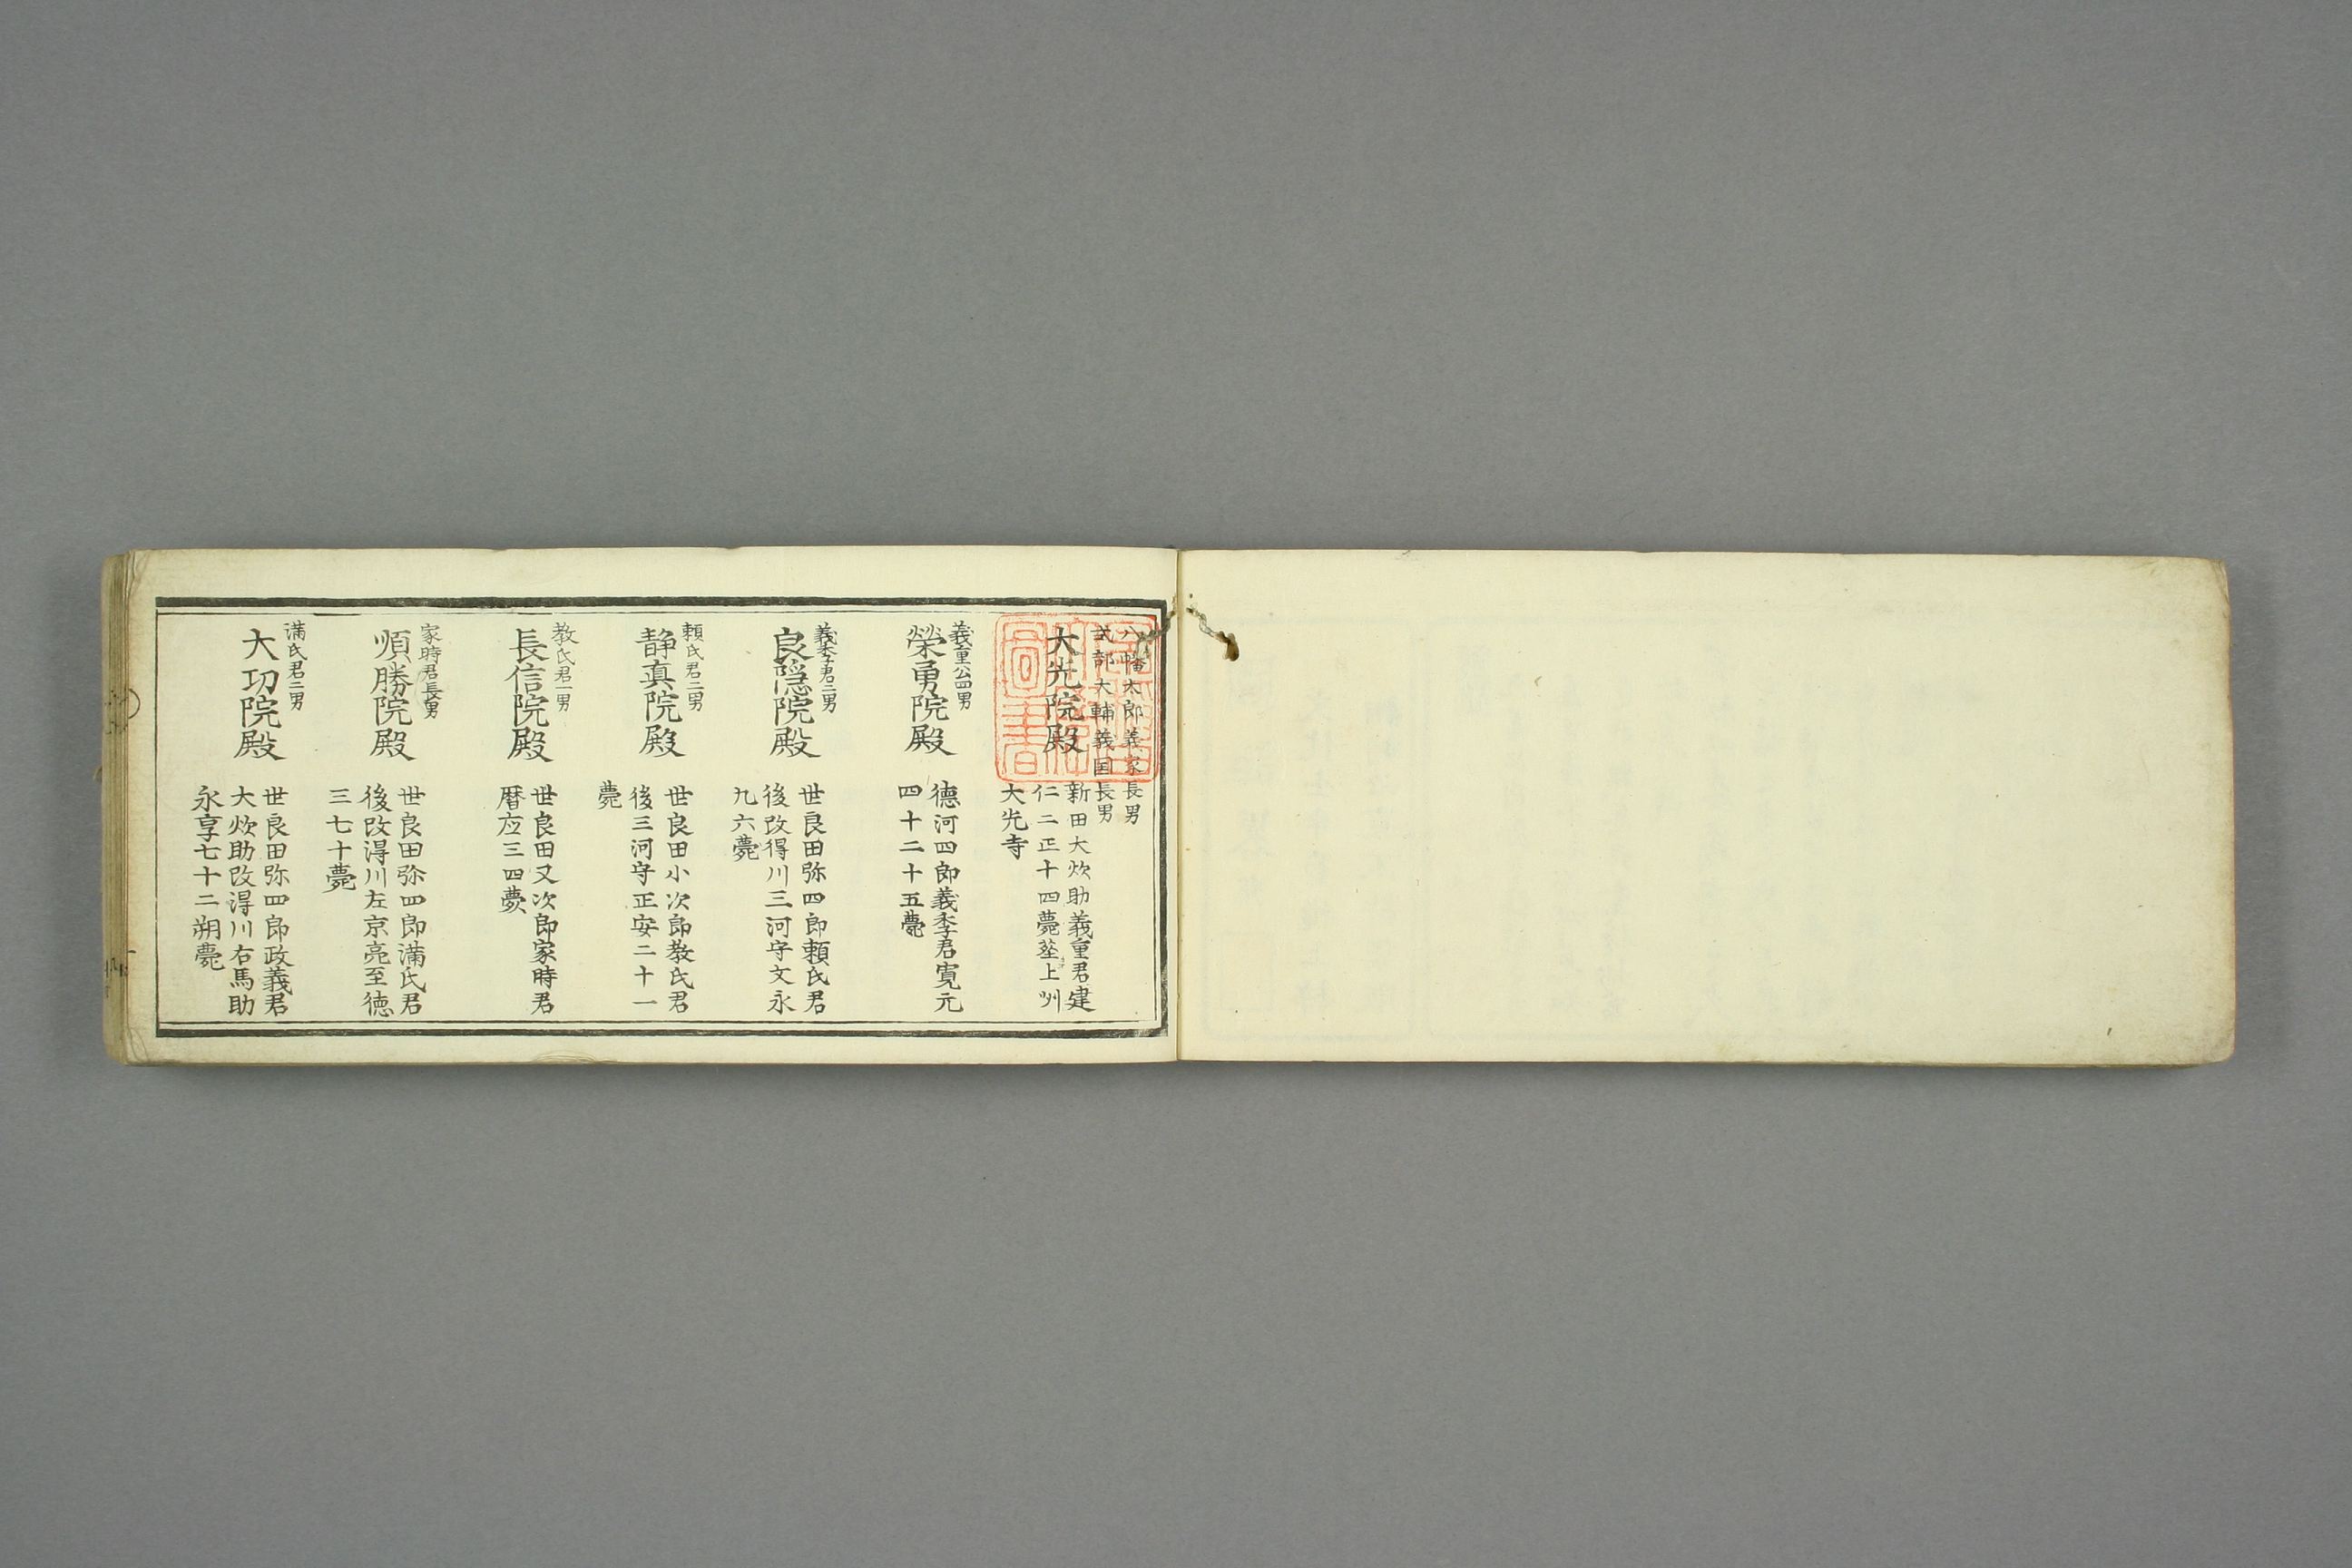 八幡太郎義家長男
式部大輔義国長男
大光院殿
新田大炊助義重君建
仁二正十四薨葬上州
大光寺
義重公四男
榮勇院殿
德河四郎義季君寛元
四十二十五薨
義季君二男
良隠院殿
世良田弥四郎頼氏君
後改得川三河守文永
九六薨
頼氏君二男
静真院殿
世良田小次郎教氏君
後三河守正安二十一
薨
教氏君一男
長信院殿
世良田又次郎家時君
暦应三四薨
家時君長男
順勝院殿
世良田弥四郎満氏君
後改得川左京亮至徳
三七十薨
満氏君二男
大功院殿
世良田弥四郎政義君
大炊助改得川右馬助
永享七十二朔薨